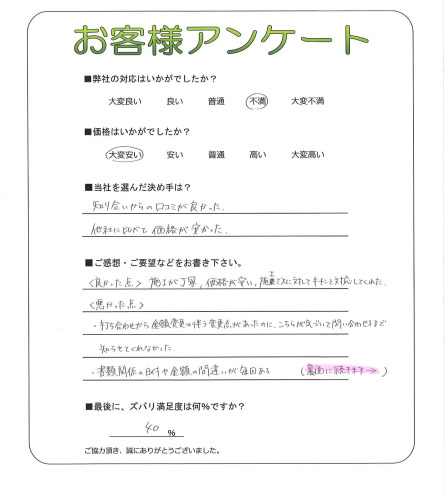 お客様アンケート
■弊社の対応はいかがでしたか？
大変良い 良い 普通 不満 大変不満
■価格はいかがでしたか？
大変安い 安い 普通 高い 大変高い
■当社を選んだ決め手は？
知り合いからの口コミが良かった.
他社に比べて価格が安かった.
■ご感想・ご要望などをお書き下さい。
<良かった点> 施工が丁寧, 価格が安い, 施工ミスに対してキチンと対応してくれた.
<悪かった点>
・打ち合わせから金額変更の伴う変更点があったのに、こちらが気づいて問い合わせるまで
知らせてくれなかった.
・書類関係の日付や金額の間違いが毎回ある (裏面に続きます→)
■最後に、ズバリ満足度は何%ですか？
40 %
ご協力頂き、誠にありがとうございました。